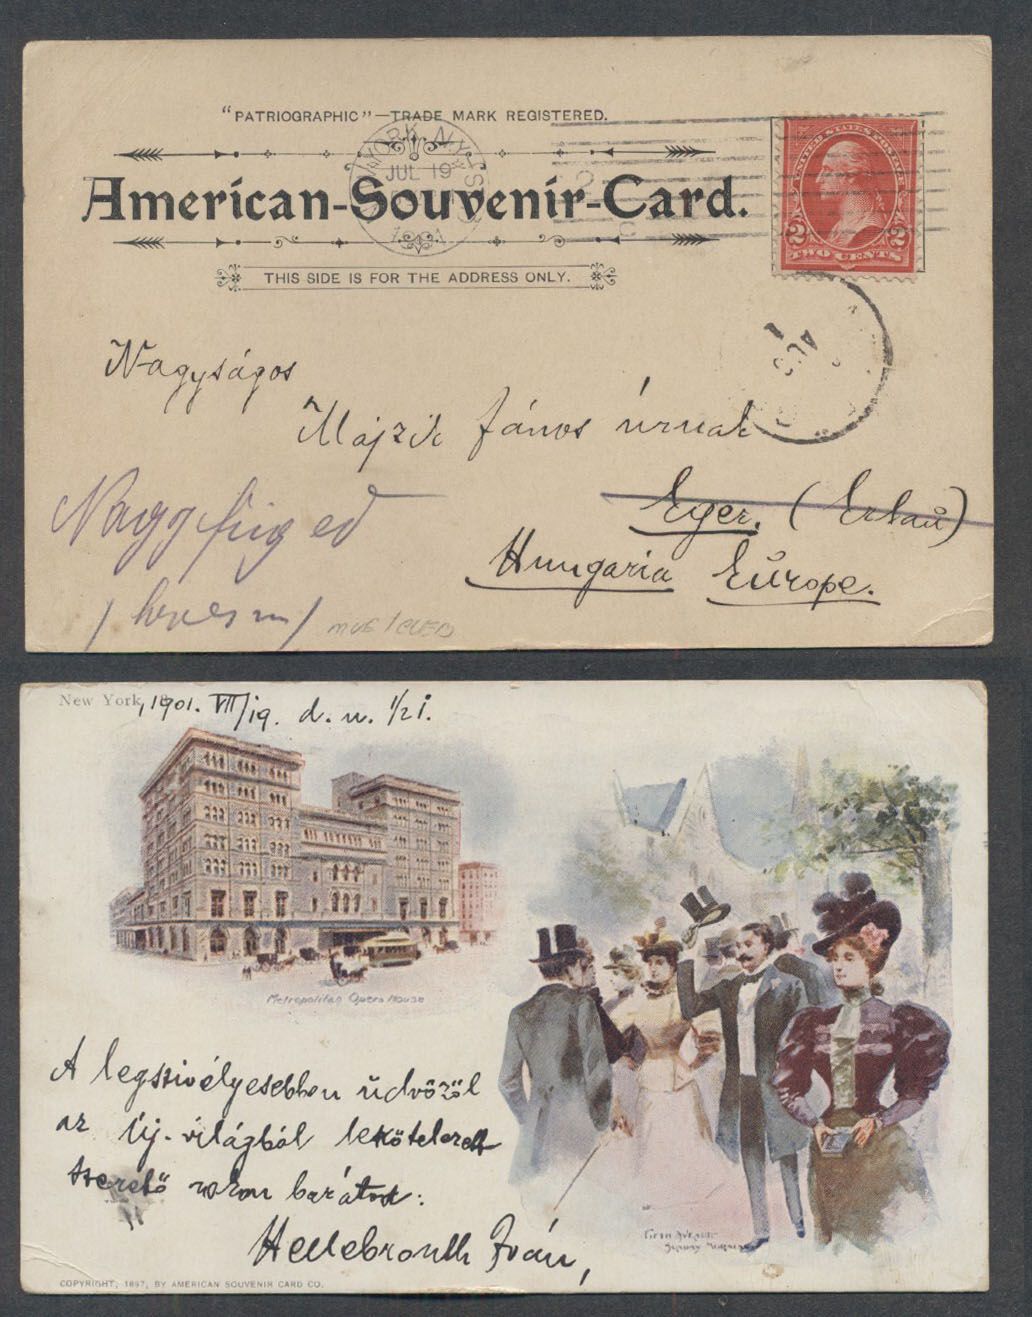 "PATRIOGRAPHIC"—TRADE MARK REGISTERED.
YORK, N.Y.
JUL 19
American-Souvenir-Card.
THIS SIDE IS FOR THE ADDRESS ONLY.
UNITED STATES POSTAGE
2 2
TWO CENTS
Nagyságos
Majzik János úrnak
Eger. (Erlau)
Hungaria Europe.
New York, 1901. VII/19. d. u. 1/2 1.
Metropolitan Opera House
A legszivélyesebben üdvözöl
az Új-világból lekötelezett
szerető barátod:
Hellebronth Iván,
FIFTH AVENUE
SUNDAY MORNING
COPYRIGHT, 1897, BY AMERICAN SOUVENIR CARD CO.